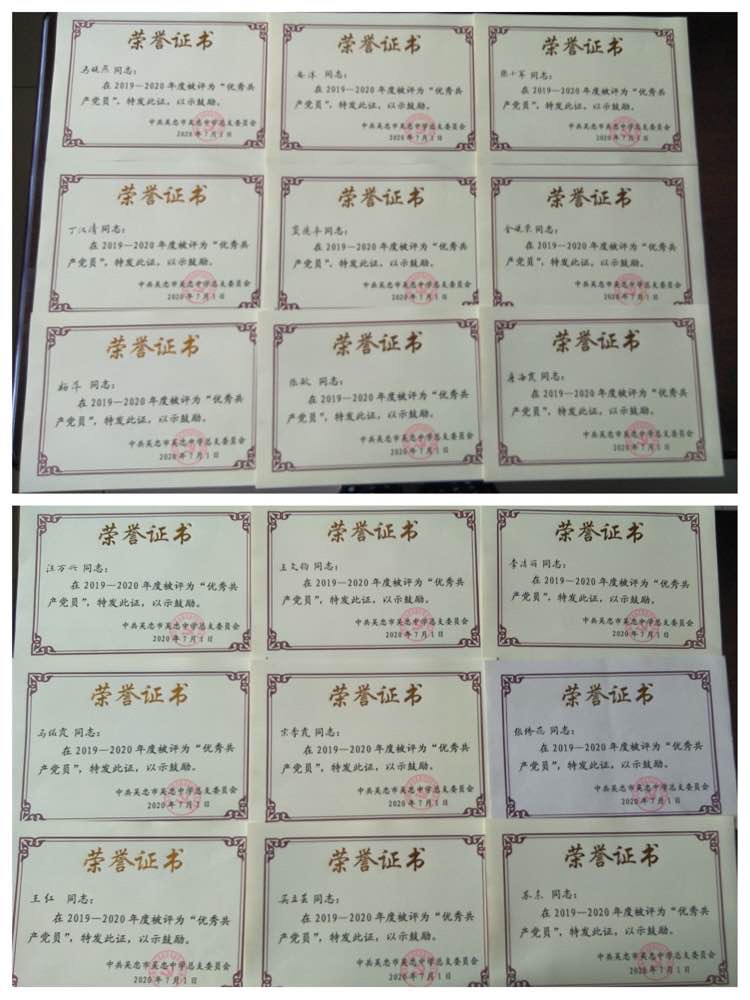 荣誉证书
马媛燕 同志：
在2019—2020年度被评为“优秀共
产党员”，特发此证，以示鼓励。
中共吴忠市吴忠中学总支委员会
2020年7月1日
荣誉证书
同志：
在2019—2020年度被评为“优秀共
产党员”，特发此证，以示鼓励。
中共吴忠市吴忠中学总支委员会
2020年7月1日
荣誉证书
张小军 同志：
在2019—2020年度被评为“优秀共
产党员”，特发此证，以示鼓励。
中共吴忠市吴忠中学总支委员会
2020年7月1日
荣誉证书
丁汉清 同志：
在2019—2020年度被评为“优秀共
产党员”，特发此证，以示鼓励。
中共吴忠市吴忠中学总支委员会
2020年7月1日
荣誉证书
同志：
在2019—2020年度被评为“优秀共
产党员”，特发此证，以示鼓励。
中共吴忠市吴忠中学总支委员会
2020年7月1日
荣誉证书
同志：
在2019—2020年度被评为“优秀共
产党员”，特发此证，以示鼓励。
中共吴忠市吴忠中学总支委员会
2020年7月1日
荣誉证书
杨萍 同志：
在2019—2020年度被评为“优秀共
产党员”，特发此证，以示鼓励。
中共吴忠市吴忠中学总支委员会
2020年7月1日
荣誉证书
张敏 同志：
在2019—2020年度被评为“优秀共
产党员”，特发此证，以示鼓励。
中共吴忠市吴忠中学总支委员会
2020年7月1日
荣誉证书
同志：
在2019—2020年度被评为“优秀共
产党员”，特发此证，以示鼓励。
中共吴忠市吴忠中学总支委员会
2020年7月1日
荣誉证书
汪万兴 同志：
在2019—2020年度被评为“优秀共
产党员”，特发此证，以示鼓励。
中共吴忠市吴忠中学总支委员会
2020年7月1日
荣誉证书
王文钧 同志：
在2019—2020年度被评为“优秀共
产党员”，特发此证，以示鼓励。
中共吴忠市吴忠中学总支委员会
2020年7月1日
荣誉证书
李洁丽 同志：
在2019—2020年度被评为“优秀共
产党员”，特发此证，以示鼓励。
中共吴忠市吴忠中学总支委员会
2020年7月1日
荣誉证书
马瑞霞 同志：
在2019—2020年度被评为“优秀共
产党员”，特发此证，以示鼓励。
中共吴忠市吴忠中学总支委员会
2020年7月1日
荣誉证书
宋香霞 同志：
在2019—2020年度被评为“优秀共
产党员”，特发此证，以示鼓励。
中共吴忠市吴忠中学总支委员会
2020年7月1日
荣誉证书
同志：
在2019—2020年度被评为“优秀共
产党员”，特发此证，以示鼓励。
中共吴忠市吴忠中学总支委员会
2020年7月1日
荣誉证书
王红 同志：
在2019—2020年度被评为“优秀共
产党员”，特发此证，以示鼓励。
中共吴忠市吴忠中学总支委员会
2020年7月1日
荣誉证书
同志：
在2019—2020年度被评为“优秀共
产党员”，特发此证，以示鼓励。
中共吴忠市吴忠中学总支委员会
2020年7月1日
荣誉证书
苏东 同志：
在2019—2020年度被评为“优秀共
产党员”，特发此证，以示鼓励。
中共吴忠市吴忠中学总支委员会
2020年7月1日